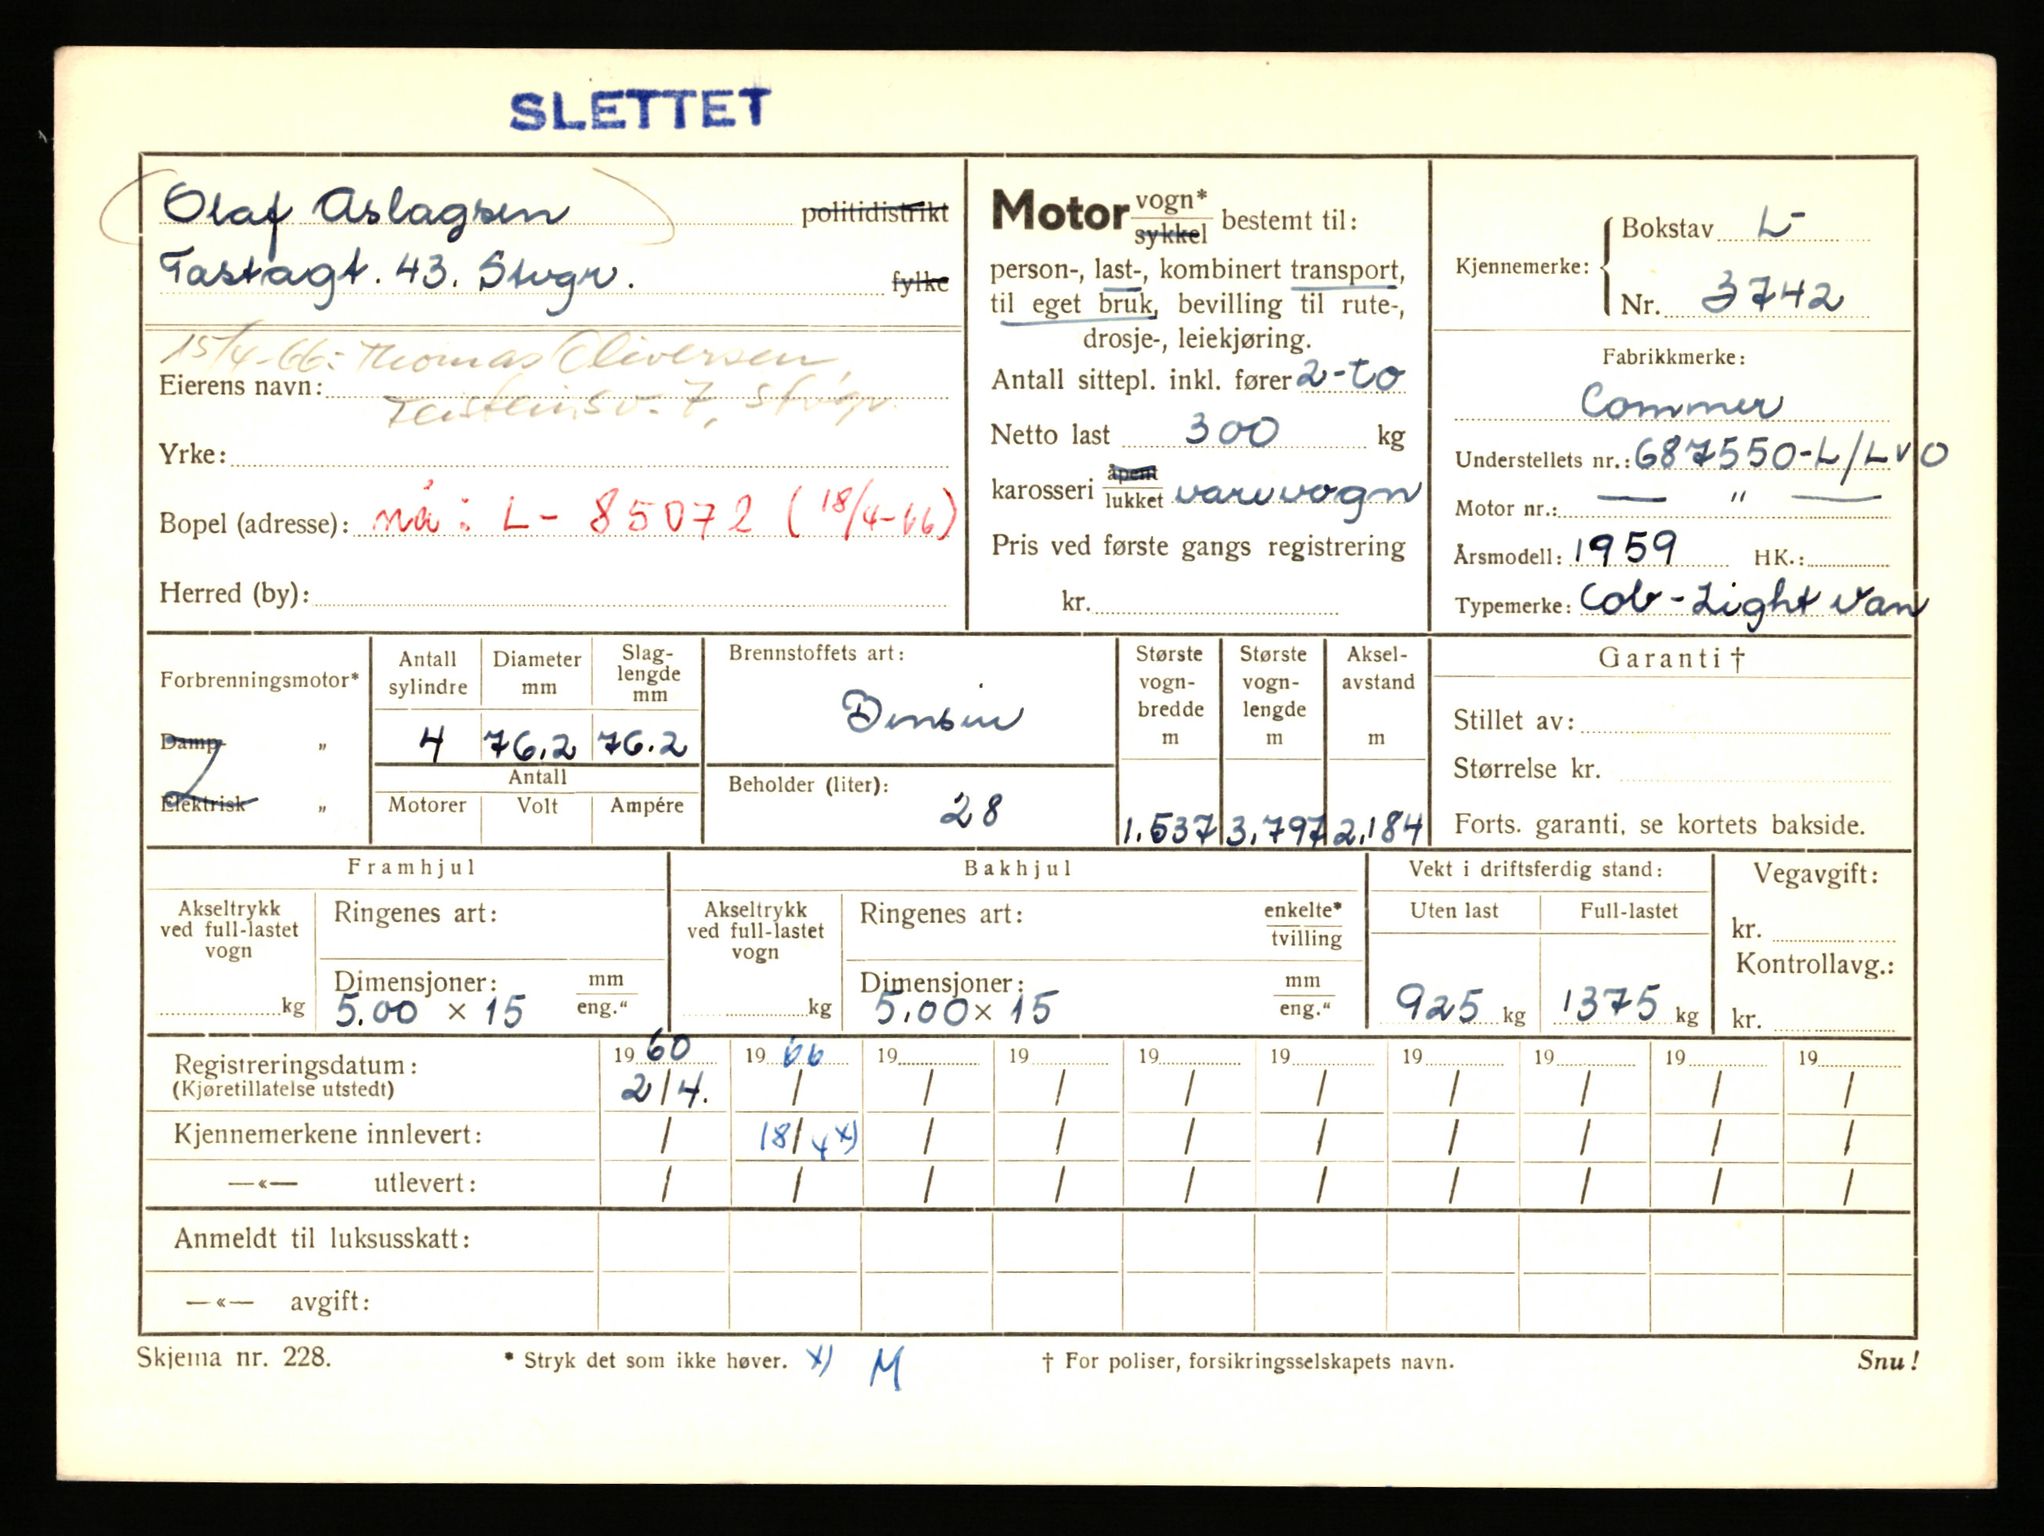 SLETTET
Olaf Aslagsen politidistrikt
Tastagt. 43. Stvgr. fylke
15/4-66: Thomas Oliversen,
Eierens navn: 7, Stvgr.
Yrke:
Bopel (adresse): nå: L- 85072 (18/4-66)
Herred (by):
Motor vogn* / sykkel bestemt til:
person-, last-, kombinert transport,
til eget bruk, bevilling til rute-,
drosje-, leiekjøring.
Antall sittepl. inkl. fører 2-to
Netto last 300 kg
karosseri åpent / lukket varevogn
Pris ved første gangs registrering
kr.
Kjennemerke: Bokstav L-
Nr. 3742
Fabrikkmerke:
Commer
Understellets nr.: 687550-L/LVO
Motor nr.: — " —
Årsmodell: 1959 HK.:
Typemerke: Cob-Light Van
Forbrenningsmotor*
Damp- "
Elektrisk "
Antall sylindre
4
Diameter mm
76.2
Slag-
lengde
mm
76.2
Antall
Motorer Volt Ampére
Brennstoffets art:
Bensin
Beholder (liter):
28
Største
vogn-
bredde
m
1.537
Største
vogn-
lengde
m
3.797
Aksel-
avstand
m
2.184
Garanti †
Stillet av:
Størrelse kr.
Forts. garanti, se kortets bakside.
Framhjul
Akseltrykk
ved full-lastet
vogn
kg
Ringenes art:
Dimensjoner: mm / eng.“
5.00 × 15
Bakhjul
Akseltrykk
ved full-lastet
vogn
kg
Ringenes art: enkelte* / tvilling
Dimensjoner: mm / eng.“
5.00 × 15
Vekt i driftsferdig stand:
Uten last Full-lastet
925 kg 1375 kg
Vegavgift:
kr.
Kontrollavg.:
kr.
Registreringsdatum: 19 60 19 66 19 19 19 19 19 19 19 19
(Kjøretillatelse utstedt) 2/4. / / / / / / / / /
Kjennemerkene innlevert: / 18/4 x) / / / / / / / /
—«— utlevert: / / / / / / / / / /
Anmeldt til luksusskatt:
—«— avgift:
Skjema nr. 228. * Stryk det som ikke høver. x) M † For poliser, forsikringsselskapets navn. Snu!